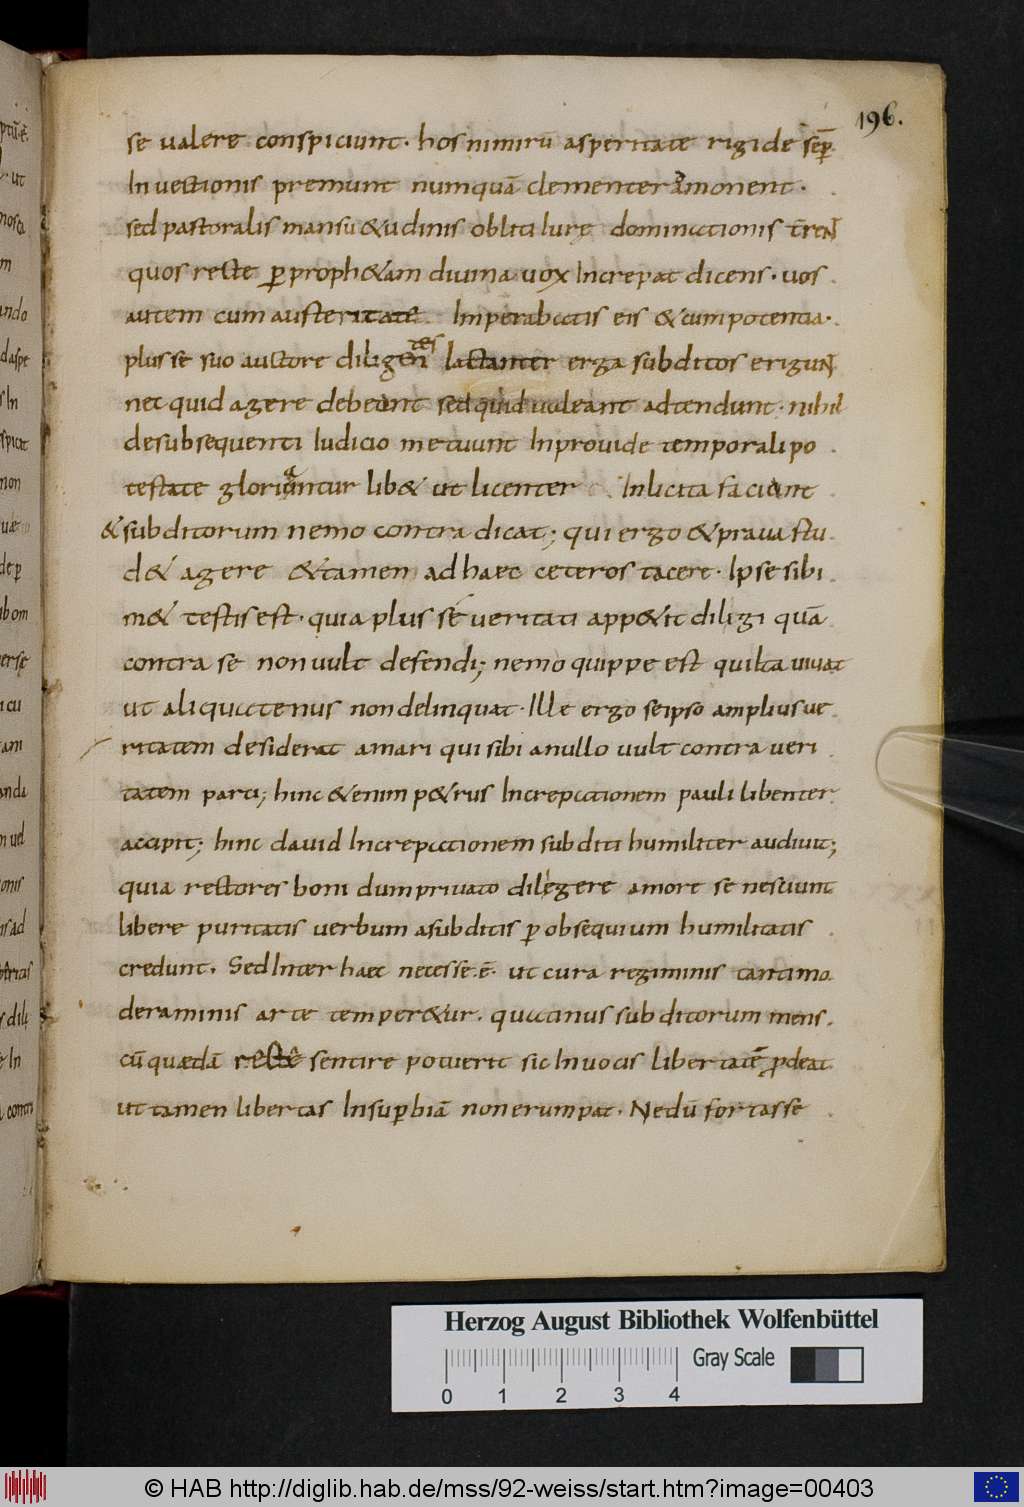 196.
se valere conspiciunt· hos nimirū asperitate rigide sēp
Inuectionis premunt numquā clementer āmonent·
sed pastoralis mansu&udinis obliti Iurę dominationis t̄reN
quos recte p proph&am diuina uox Increpat dicens· uos
autem cum austeritate Imperabatis eis &cumpotentia·
plus se suo auctore diligentes Iactanter erga subditos eriguN
nec quid agere debeant sed quid ualeant adtendunt· nihil
desubsequenti Iudicio metuunt Inprouide temporali po
testate gloriantur lib& ut licenter Inlicita faciant
&subditorum nemo contra dicat; qui ergo &praua stu
d& agere &tamen ad haec ceteros tacere· Ipse sibi
m& testis est· quia plus sé ueritati app&it diligi quā
contra se non uult defendi; nemo quippe est quiIta uiuat
ut aliquatenus non delinquat· Ille ergo seipso amplius ue
ritatem desiderat amari qui sibi anullo uult contra ueri
tatem parci; hinc &enim p&rus Increpationem pauli libenter
accipit; hinc dauid Increpationem subditi humiliter audiuit;
quia rectores boni dum priuato dilegere amore se nesciunt
libere puritatis uerbum asubditis p obsequium humilitatis
credunt. Sed Inter haec necesse·ē· ut cura regiminis tanti mo
deraminis arte temper&ur· quatinus subditorum mens
cū quaedā recte sentire potuerit sic In uocis libertatē pdeat
ut tamen libertas Insupbiā non erumpat· Nedū fortasse
Herzog August Bibliothek Wolfenbüttel
Gray Scale
0 1 2 3 4
© HAB http://diglib.hab.de/mss/92-weiss/start.htm?image=00403